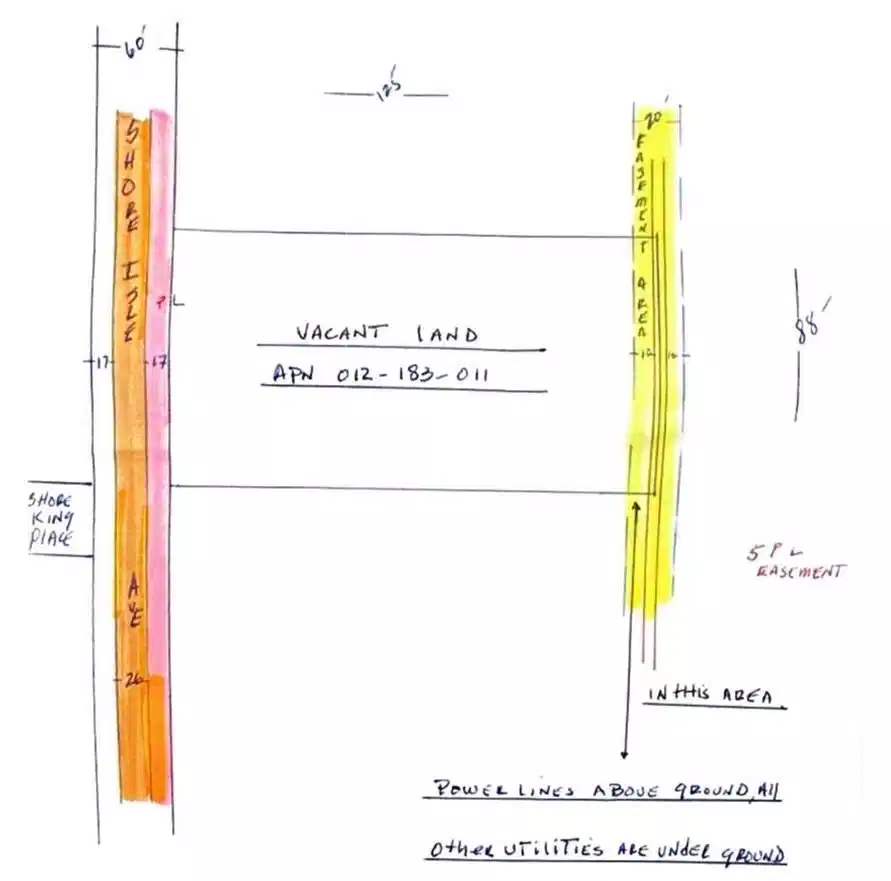 60'
125'
20'
SHORE ISLE
EASEMENT AREA
PL
VACANT LAND
APN 012-183-011
17
17
10
10
88'
SHORE
KING
PLACE
AVE
5 PL
EASEMENT
26
IN this AREA.
POWER LINES ABOVE GROUND, All
Other UTILITIES ARE UNDER GROUND